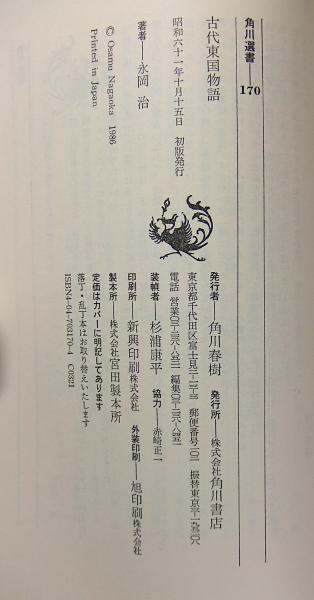 角川選書――170
古代東国物語
昭和六十一年十月十五日　初版発行
著者――永岡　治
© Osamu Nagaoka 1986
Printed in Japan
発行者――角川春樹　発行所――株式会社角川書店
東京都千代田区富士見
装幀者――杉浦康平　協力――赤崎正一
印刷所――新興印刷株式会社　外装印刷――旭印刷株式会社
製本所――株式会社宮田製本所
定価はカバーに明記してあります
落丁・乱丁本はお取り替えいたします
ISBN4-04-703170-4　C0321